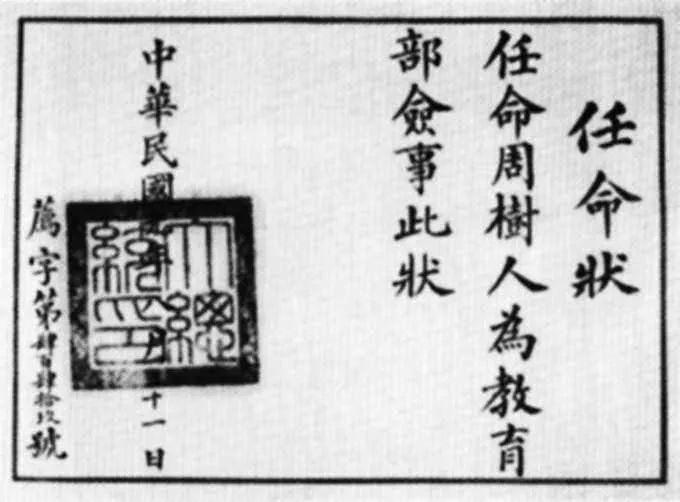 任命狀
任命周樹人為教育
部僉事此狀
中華民國十一日
大總
統印
薦字第肆百肆拾玖號